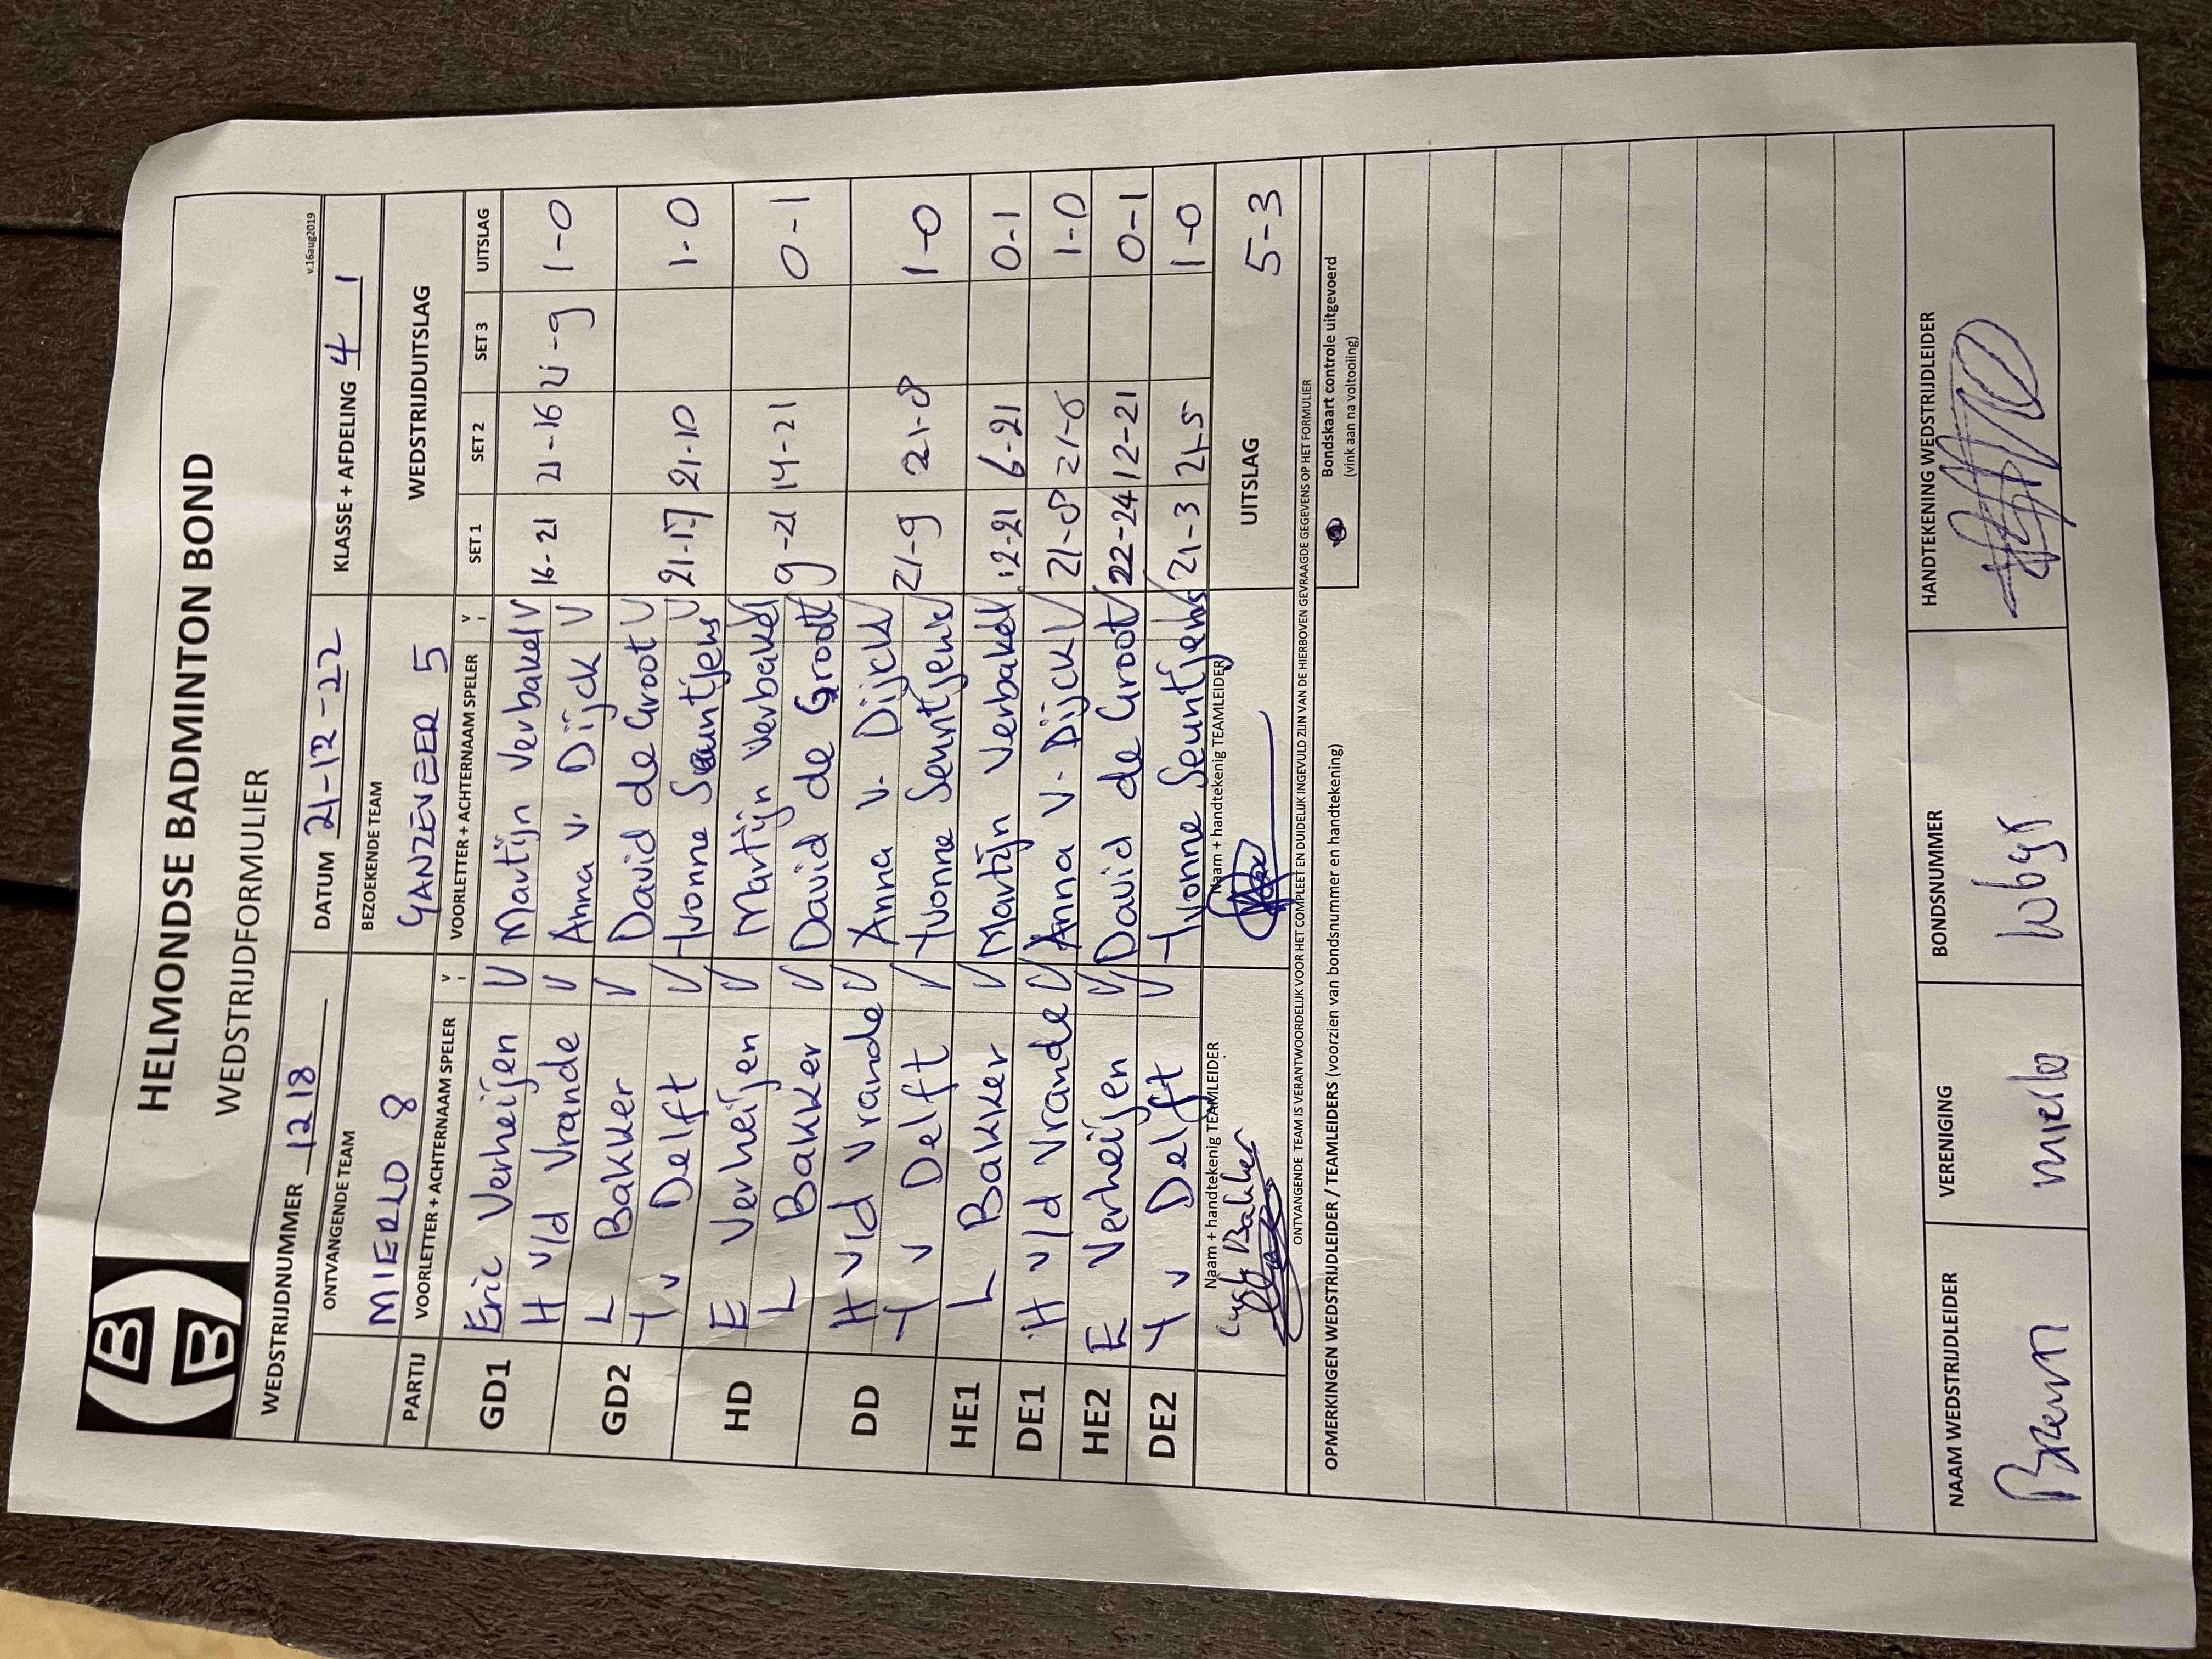 HELMONDSE BADMINTON BOND
WEDSTRIJDFORMULIER
v.16aug2019
WEDSTRIJDNUMMER 1218 DATUM 21-12-22 KLASSE + AFDELING 4 1
ONTVANGENDE TEAM BEZOEKENDE TEAM WEDSTRIJDUITSLAG
MIERLO 8 GANZEVEER 5
PARTIJ VOORLETTER + ACHTERNAAM SPELER V VOORLETTER + ACHTERNAAM SPELER V SET 1 SET 2 SET 3 UITSLAG
GD1 Eric Verheijen V Martijn Verbakel V 16-21 21-16 21-9 1-0
H v/d Vrande V Anna v. Dijck V
GD2 L Bakker V David de Groot V
Y v Delft V Yvonne Seuntjens V 21-17 21-10 1-0
HD E Verheijen V Martijn Verbakel
L Bakker V David de Groot 9-21 14-21 0-1
DD H v/d Vrande V Anna v. Dijck V
Y v Delft V Yvonne Seuntjens 21-9 21-8 1-0
HE1 L Bakker V Martijn Verbakel 12-21 6-21 0-1
DE1 H v/d Vrande V Anna v. Dijck V 21-8 21-6 1-0
HE2 E Verheijen V David de Groot V 22-24 12-21 0-1
DE2 Y v Delft V Yvonne Seuntjens 21-3 21-5 1-0
Naam + handtekenig TEAMLEIDER Naam + handtekenig TEAMLEIDER UITSLAG 5-3
Bakker
ONTVANGENDE TEAM IS VERANTWOORDELIJK VOOR HET COMPLEET EN DUIDELIJK INGEVULD ZIJN VAN DE HIERBOVEN GEVRAAGDE GEGEVENS OP HET FORMULIER
OPMERKINGEN WEDSTRIJDLEIDER / TEAMLEIDERS (voorzien van bondsnummer en handtekening)
Bondskaart controle uitgevoerd
(vink aan na voltooiing)
NAAM WEDSTRIJDLEIDER VERENIGING BONDSNUMMER HANDTEKENING WEDSTRIJDLEIDER
mierlo
B
B